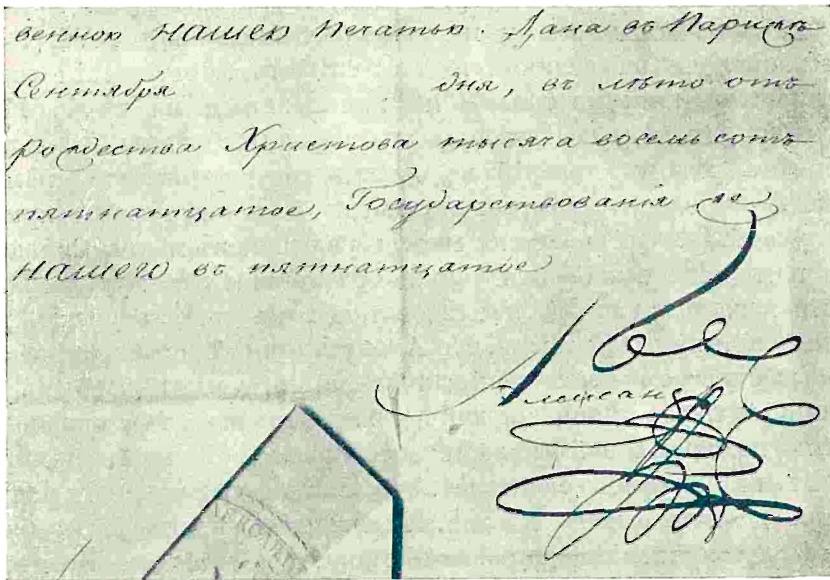 венною НАШЕЮ печатью. Дана въ Парижѣ
Сентября дня, въ лѣто отъ
рождества Христова тысяча восемь сотъ
пятнатцатое, Государствованія
НАШЕГО въ пятнатцатое
Александ